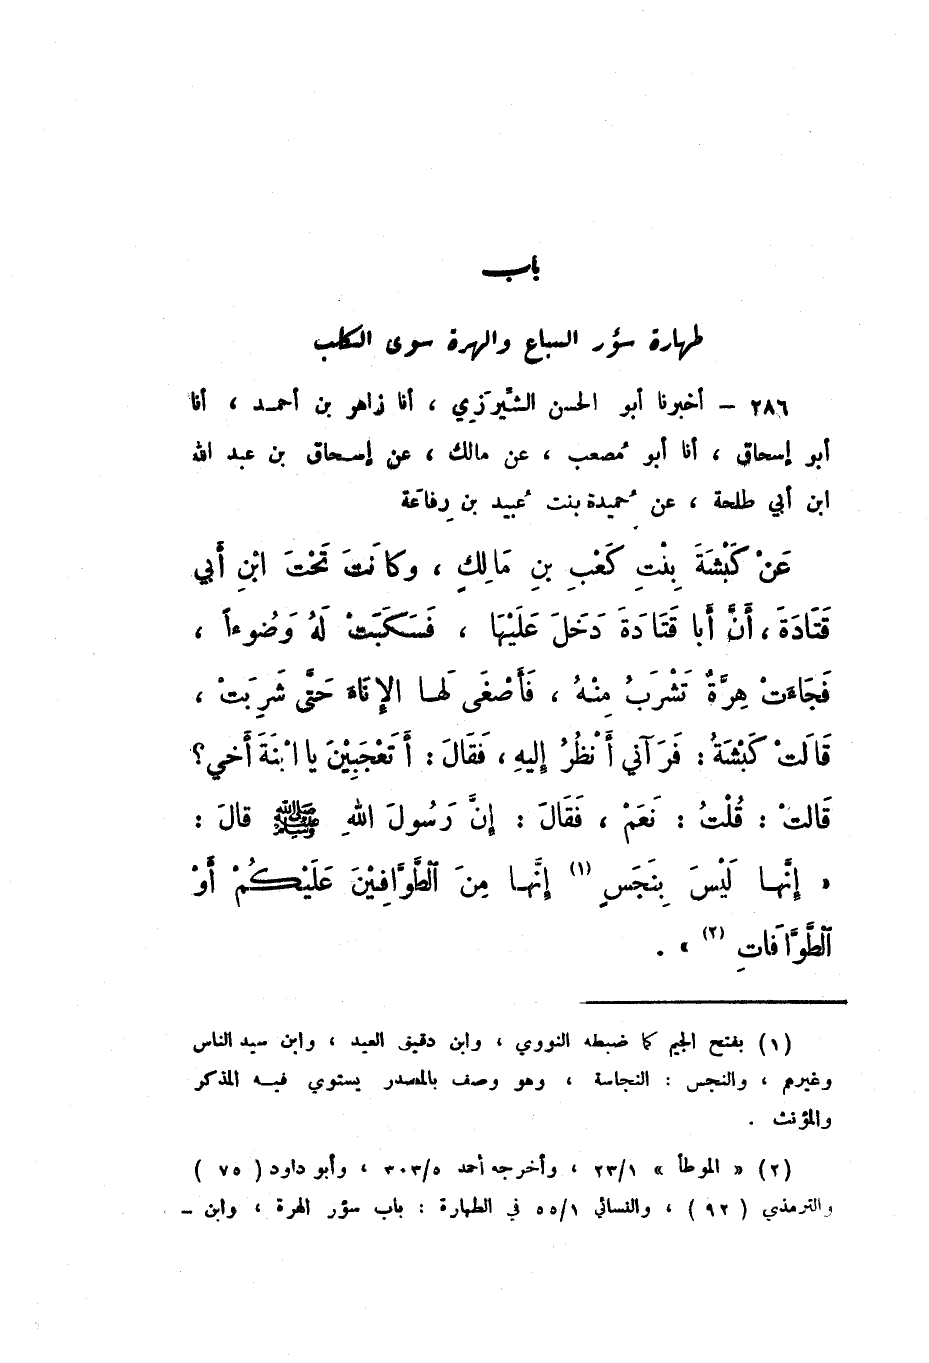 باب
طهارة سؤر السباع والهرة سوى الكلب
٢٨٦ – أخبرنا أبو الحسن الشِّيرَزي ، أنا زاهر بن أحمد ، أنا
أبو إسحاق ، أنا أبو مُصعب ، عن مالك ، عن إسحاق بن عبد الله
ابن أبي طلحة ، عن حُميدة بنت عُبيد بن رِفاعَة
عَنْ كَبْشَةَ بِنْتِ كَعْبِ بنِ مَالِكٍ ، وكانَتْ تَحْتَ ابْنِ أَبي
قَتَادَةَ ، أَنَّ أَبا قَتَادَةَ دَخَلَ عَلَيْهَا ، فَسَكَبَتْ لَهُ وَضُوءاً ،
فَجَاءَتْ هِرَّةٌ تَشْرَبُ مِنْهُ ، فَأَصْغَى لَها الإِنَاءَ حَتَّى شَرِبَتْ ،
قَالَتْ كَبْشَةُ : فَرَآني أَنْظُرُ إليهِ ، فَقَالَ : أَتَعْجَبِيْنَ يا ابْنَةَ أَخي؟
قَالَتْ : قُلْتُ : نَعَمْ ، فَقَالَ : إنَّ رَسُولَ اللهِ ﷺ قالَ :
« إنَّها لَيْسَ بِنَجَسٍ (١) إنَّها مِنَ الطَّوَّافِيْنَ عَلَيْكُمْ أَوْ
الطَّوَّافَاتِ (٢) » .
(١) بفتح الجيم كما ضبطه النووي ، وابن دقيق العيد ، وابن سيد الناس
وغيرهم ، والنجس : النجاسة ، وهو وصف بالمصدر يستوي فيه المذكر
والمؤنث .
(٢) « الموطأ » ٢٣/١ ، وأخرجه أحمد ٣٠٣/٥ ، وأبو داود ( ٧٥ )
والترمذي ( ٩٢ ) ، والنسائي ٥٥/١ في الطهارة : باب سؤر الهرة ، وابن –